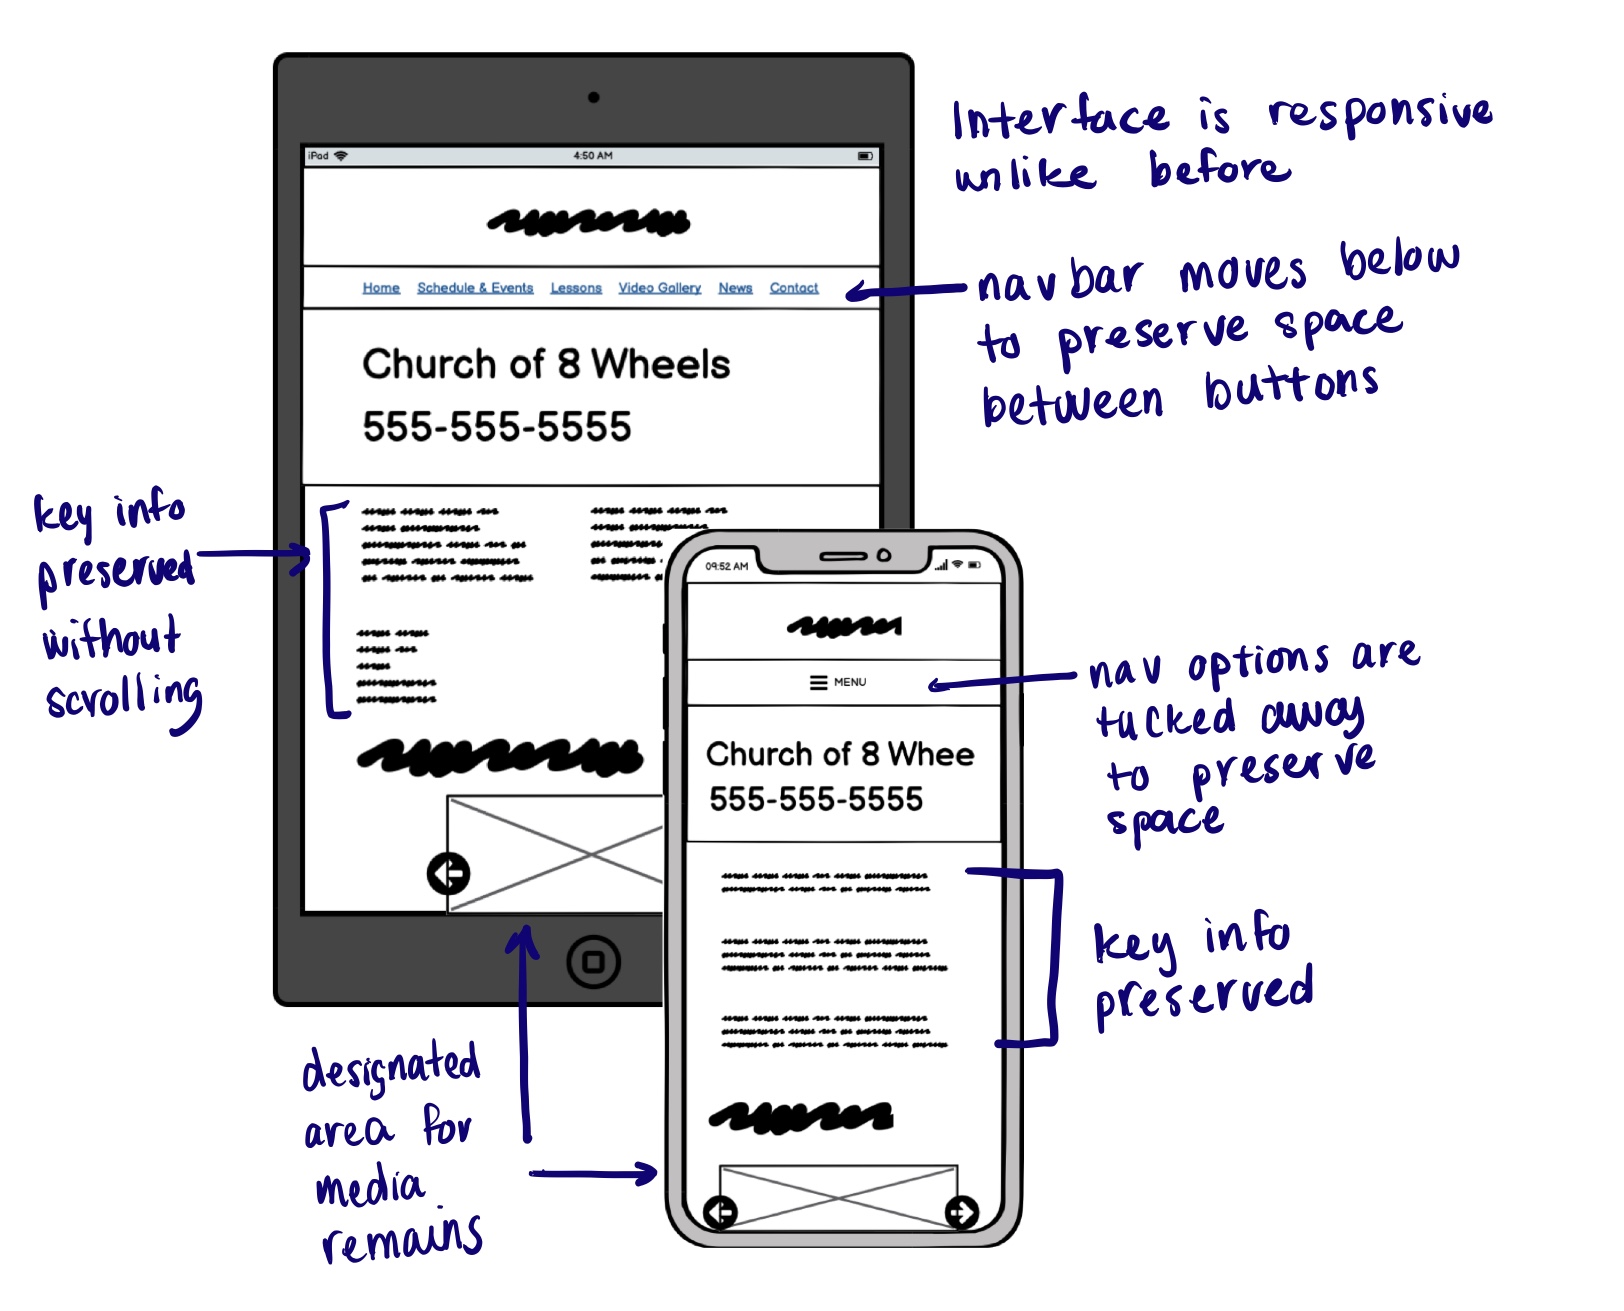 iPad
4:50 AM
Home Schedule & Events Lessons Video Gallery News Contact
Church of 8 Wheels
555-555-5555
Interface is responsive
unlike before
navbar moves below
to preserve space
between buttons
key info
preserved
without
scrolling
09:52 AM
MENU
Church of 8 Whee
555-555-5555
nav options are
tucked away
to preserve
space
key info
preserved
designated
area for
media
remains